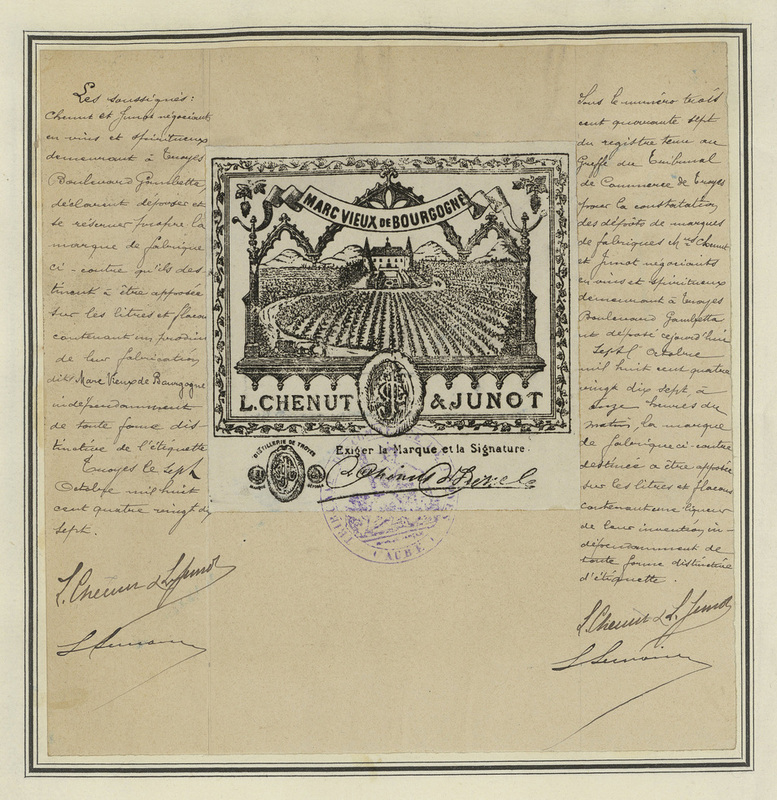 Les soussignés :
Chenut et Junot négociants
en vins et spiritueux
demeurant à Troyes
Boulevard Gambetta
déclarent déposer et
se réserver propre la
marque de fabrique
ci-contre qu'ils des
tinent à être apposée
sur les litres et flacons
contenant un produit
de leur fabrication
dit Marc Vieux de Bourgogne
indépendamment
de toute forme dis-
tinctive de l'étiquette
Troyes le sept
Octobre mil huit
cent quatre vingt dix
sept.
L. Chenut & L. Junot
MARC VIEUX DE BOURGOGNE
L. CHENUT & JUNOT
DISTILLERIE DE TROYES
Exiger la Marque et la Signature
L. Chenut & Junot
AUBE
Sous le numéro trois
cent quarante sept
du registre tenu au
Greffe du Tribunal
de Commerce de Troyes
pour la constatation
des dépôts de marques
de fabriques Chenut
et Junot négociants
en vins et spiritueux
demeurant à Troyes
Boulevard Gambetta
ont déposé cejourd'hui
Sept Octobre
mil huit cent quatre
vingt dix sept à
onze heures du
matin, la marque
de fabrique ci-contre
destinée à être apposée
sur les litres et flacons
contenant une liqueur
de leur invention, in-
dépendamment de
toute forme distinctive
d'étiquette.
L. Chenut & L. Junot